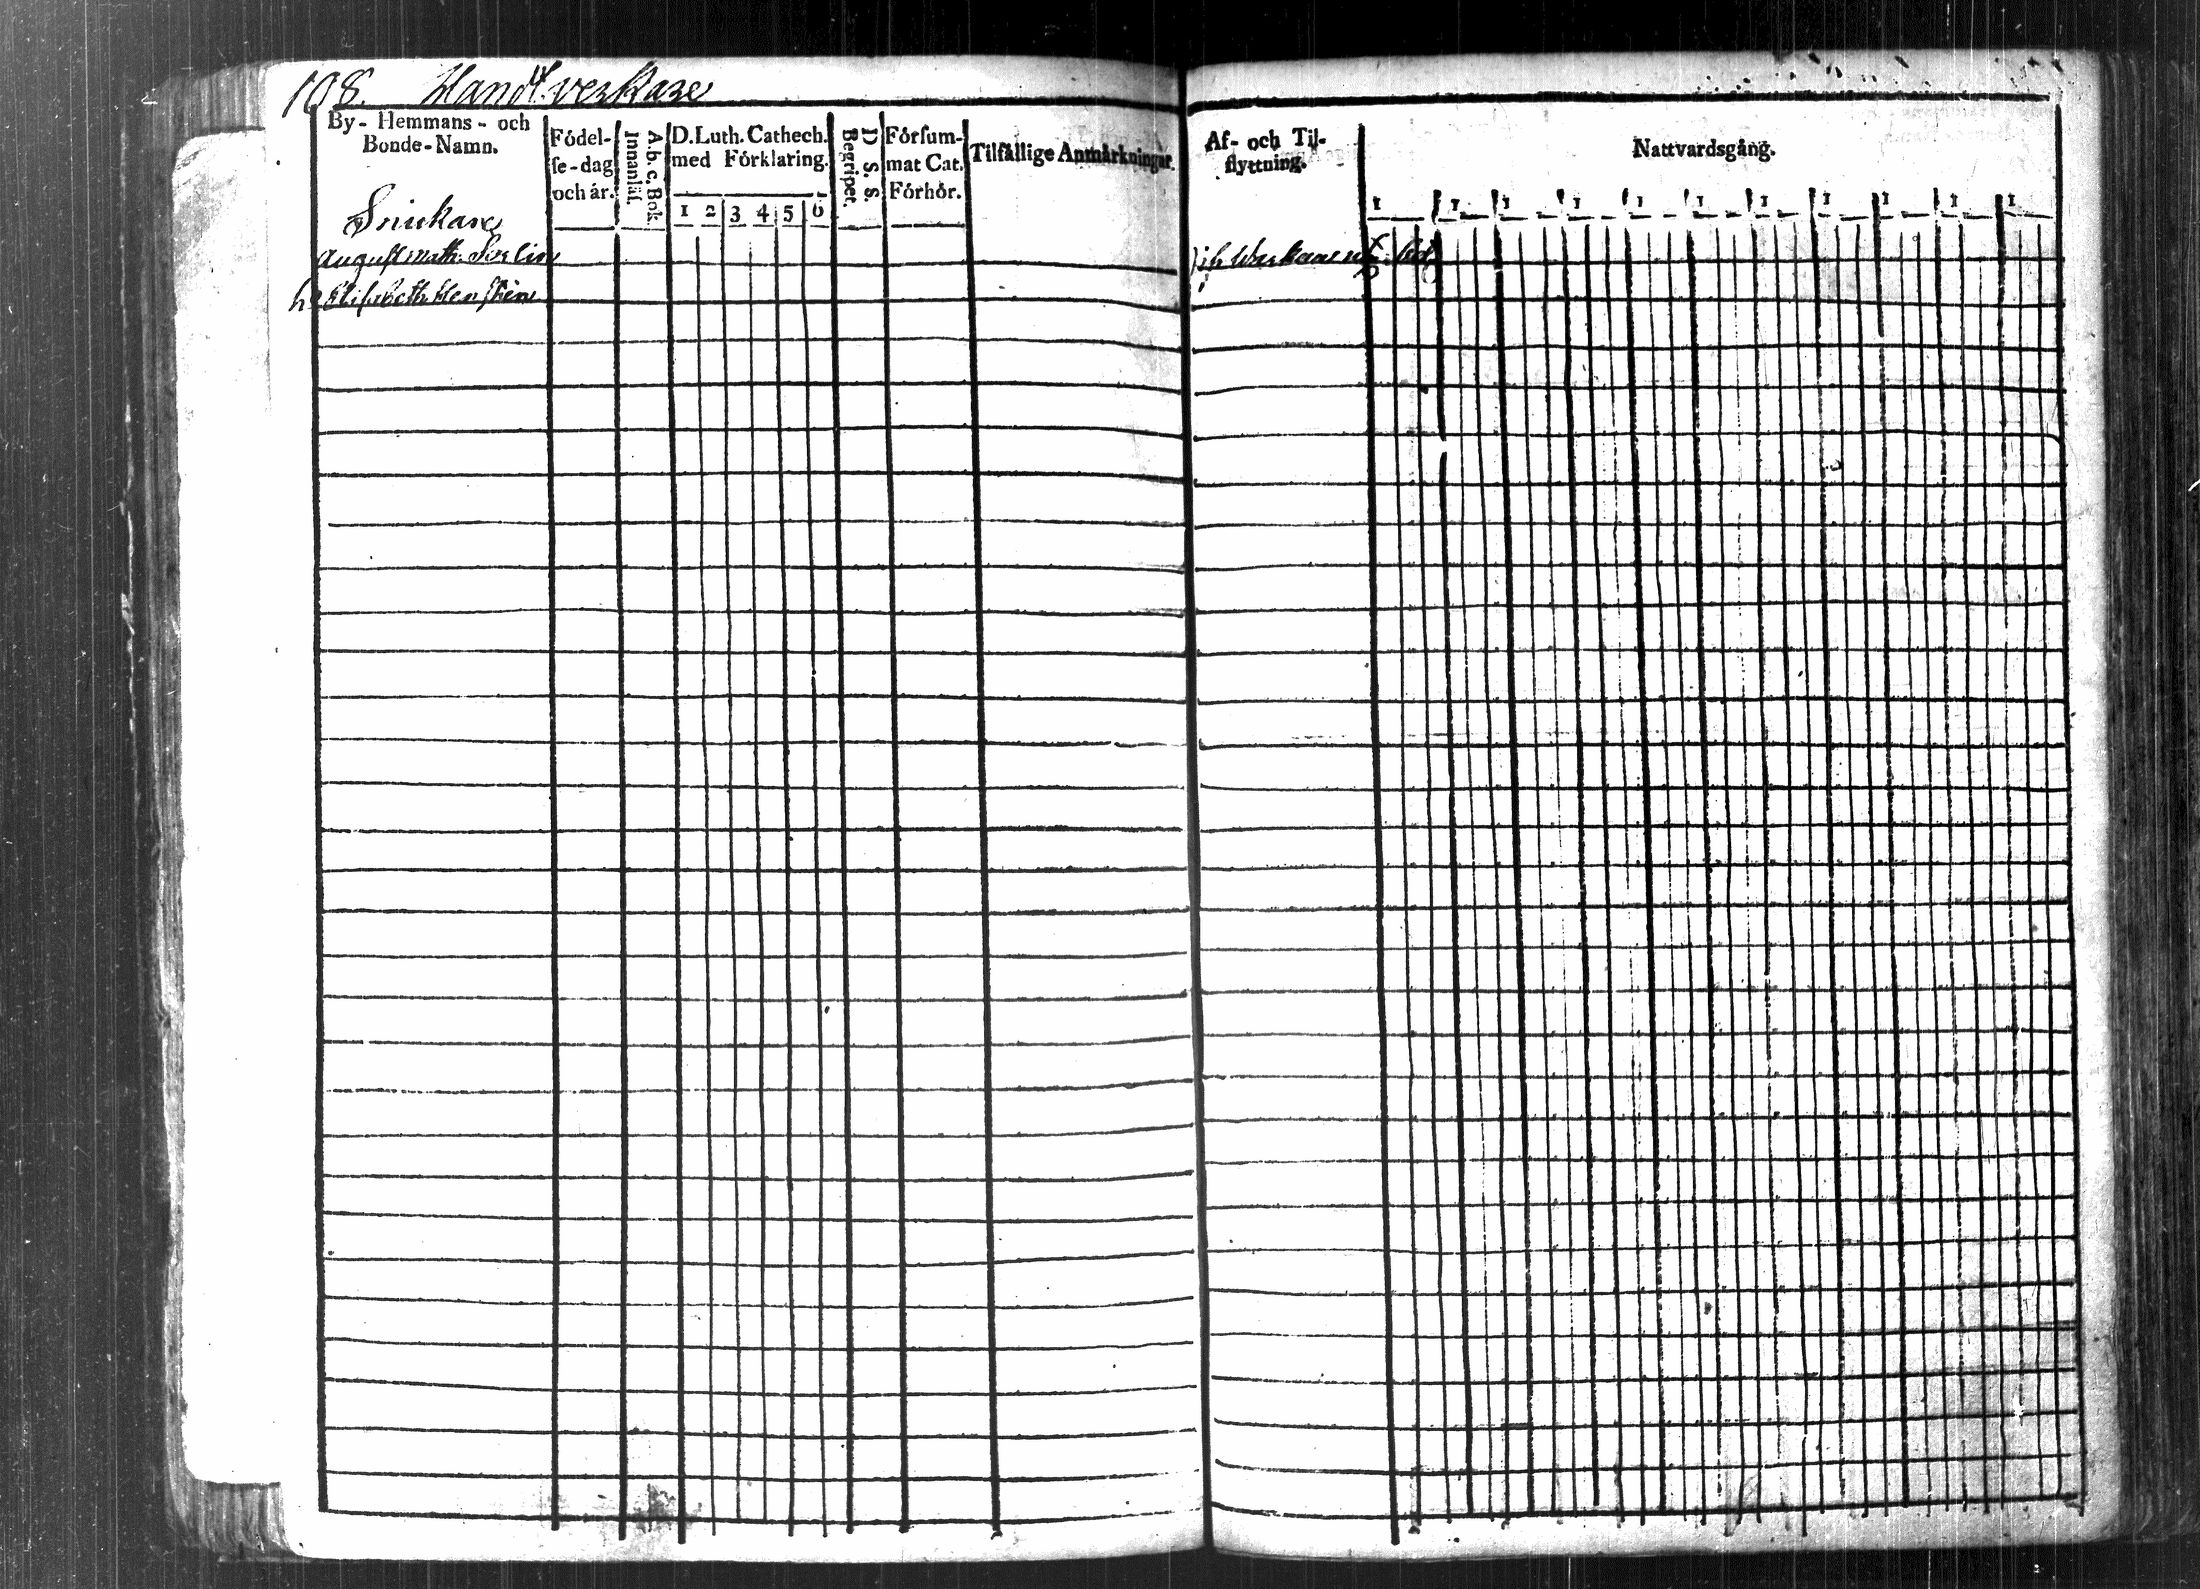 108. Handtverkare
By- Hemmans- och Bonde-Namn.
Födel-se-dag och år.
A.b.c. Bok. Innanläs.
D. Luth. Cathech. med Förklaring.
1 2 3 4 5 6
D. S. S. Begripet.
Försum-mat Cat. Förhör.
Tilfällige Anmärkningar.
Af- och Til-flyttning.
Nattvardsgång.
1 1 1 1 1 1 1 1 1 1 1
Snickare
August Math.
h Elisabeth